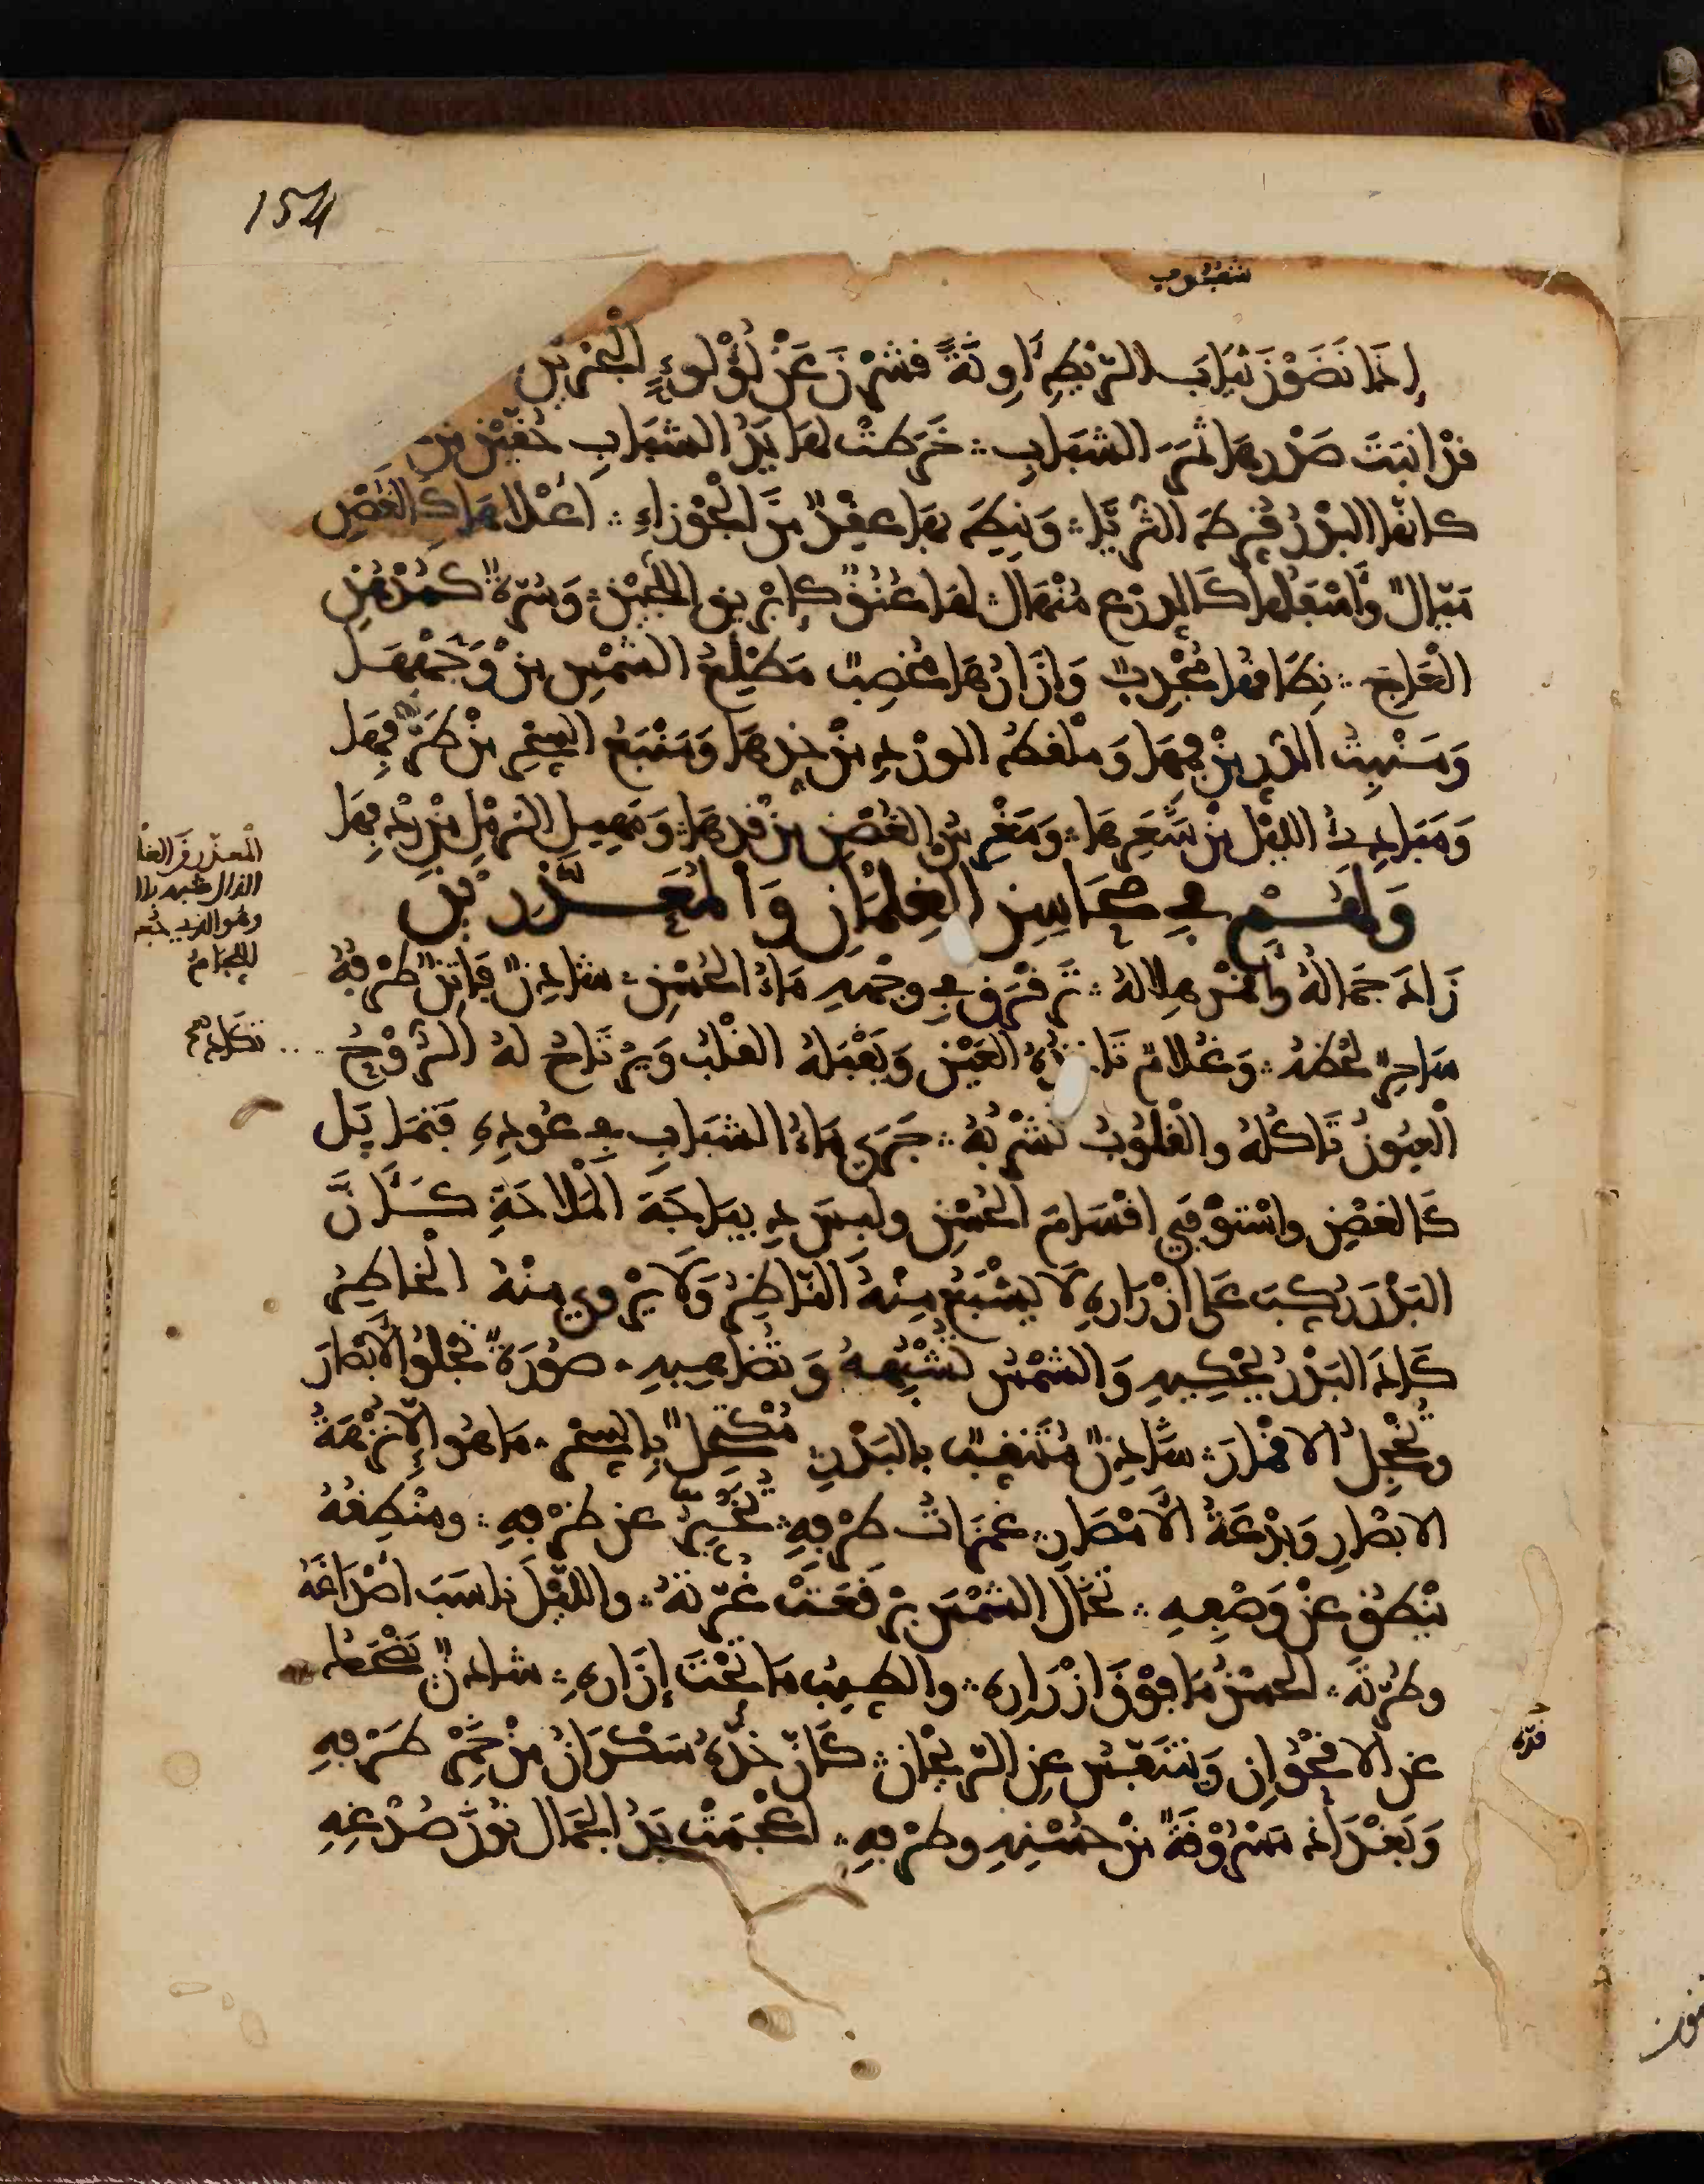 154
إِذَا نَضَوْنَ ثِيَابَ الرَّيْطِ آوِنَةً قَشَرْنَ عَنْ لُؤْلُؤِ الْبَحْرَيْنِ
قَدْ انْبَتَ صَدْرُهَا ثَمَرَ الشَّبَابِ ؞ خَرَطَتْ لَهَا يَدُ الشَّبَابِ حُقَّيْنِ مِنْ
كَأَنَّهَا الْبَدْرُ قُرِّطَ الثُّرَيَّا ؞ وَنِيطَ بِهَا عِقْدٌ مِنَ الْجَوْزَاءِ ؞ أَعْلَاهَا كَالْغُصْنِ
مَيَّالٌ وَأَسْفَلُهَا كَالدِّعْصِ مُنْهَالٌ ؞ لَهَا عُنُقٌ كَإِبْرِيقِ اللُّجَيْنِ ؞ وَسُرَّةٌ كَمُدْهُنِ
الْعَاجِ ؞ نِطَاقُهَا مُجْدِبٌ وَإِزَارُهَا مُخْصِبٌ مَطْلَعُ الشَّمْسِ مِنْ وَجْهِهَا
وَمَنْبِتُ الدُّرِّ مِنْ فَمِهَا وَمَلْقَطُ الْوَرْدِ مِنْ خَدِّهَا وَمَنْبَعُ السِّحْرِ مِنْ طَرْفِهَا
وَمَبَادِئُ اللَّيْلِ مِنْ شَعَرِهَا ؞ وَمَغْرِسُ الْغُصْنِ مِنْ قَدِّهَا ؞ وَمَهِيلُ الرَّمْلِ مِنْ رِدْفِهَا
وَلَهُمْ فِي مَحَاسِنِ الْغِلْمَانِ وَالْمُعَذَّرِينَ
زَادَ جَمَالُهُ وَأَقْمَرَ هِلَالُهُ ؞ تَرَقْرَقَ فِي وَجْهِهِ مَاءُ الْحُسْنِ ؞ شَادِنٌ فَاتِنٌ طَرْفُهُ
سَاحِرٌ لَحْظُهُ ؞ وَغُلَامٌ تَأْخُذُهُ الْعَيْنُ وَيَقْبَلُهُ الْقَلْبُ وَيَرْتَاحُ لَهُ الرُّوحُ
الْعُيُونُ تَأْكُلُهُ وَالْقُلُوبُ تَشْرَبُهُ ؞ جَرَى مَاءُ الشَّبَابِ فِي عُودِهِ فَتَمَايَلَ
كَالْغُصْنِ وَاسْتَوْفَى أَقْسَامَ الْحُسْنِ وَلَبِسَ دِيبَاجَةَ الْمَلَاحَةِ كَأَنَّ
الْبَدْرَ رُكِّبَ عَلَى أَزْرَارِهِ لَا يَشْبَعُ مِنْهُ النَّاظِرُ وَلَا يَرْوِي مِنْهُ الْخَاطِرُ
كَادَ الْبَدْرُ يَحْكِيهِ وَالشَّمْسُ تُشْبِهُهُ وَتُضَاهِيهِ ؞ صُورَةٌ تَجْلُو الْأَبْصَارَ
وَتُخْجِلُ الْأَقْمَارَ ؞ شَادِنٌ مُتَنَقِّبٌ بِالْبَدْرِ مُكْتَحِلٌ بِالسِّحْرِ ؞ مَا هُوَ إِلَّا نُزْهَةُ
الْأَبْصَارِ وَبِدْعَةُ الْأَمْصَارِ ؞ غَمَزَاتُ طَرْفِهِ ؞ تُخْبِرُ عَنْ ظَرْفِهِ ؞ وَمَنْطِقُهُ
يَنْطِقُ عَنْ وَصْفِهِ ؞ تَخَالُ الشَّمْسَ بَرْقَعَتْ غُرَّتَهُ ؞ وَاللَّيْلَ نَاسَبَ أَصْدَاغَهُ
وَطُرَّتَهُ ؞ الْحُسْنُ مَا فَوْقَ أَزْرَارِهِ ؞ وَالطِّيبُ مَا تَحْتَ إِزَارِهِ ؞ شَادِنٌ يَضْحَكُ
عَنِ الْأُقْحُوَانِ وَيَتَنَفَّسُ عَنِ الرَّيْحَانِ ؞ كَأَنَّ خَدَّهُ سَكْرَانُ مِنْ خَمْرِ طَرْفِهِ
وَبَغْدَاذَ مَسْرُوقَةٌ مِنْ حُسْنِهِ وَظَرْفِهِ ؞ أَعْجَمَتْ يَدُ الْجَمَالِ نُونَ صُدْغِهِ